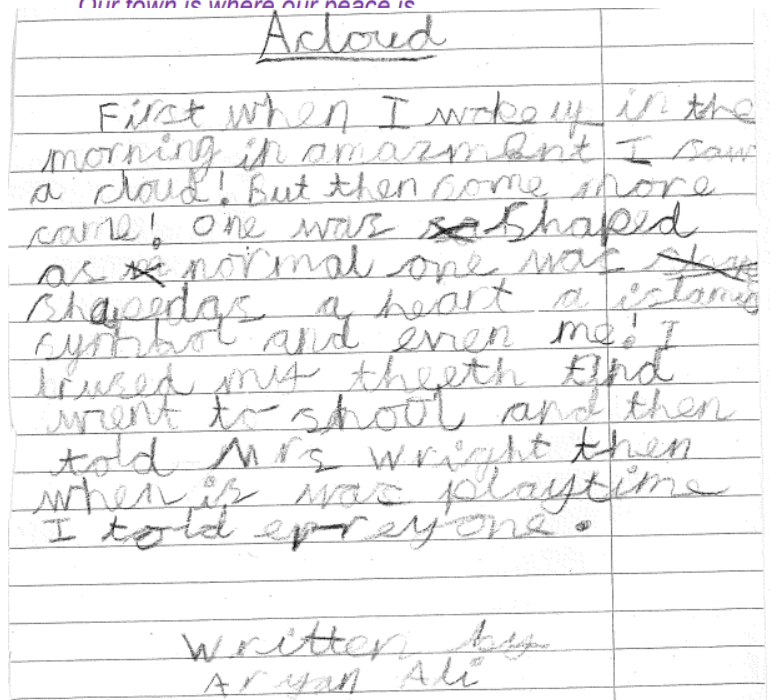 Our town is where our peace is
A cloud
First when I woke up in the
morning in amazment I saw
a cloud! But then some more
came! One was shaped
as normal one was
shapedas a heart a islamic
symbol and even me! I
brused my theeth And
went to shool and then
told Mrs Wright then
when is was playtime
I told epreyone.
Written by
Aryan Ali